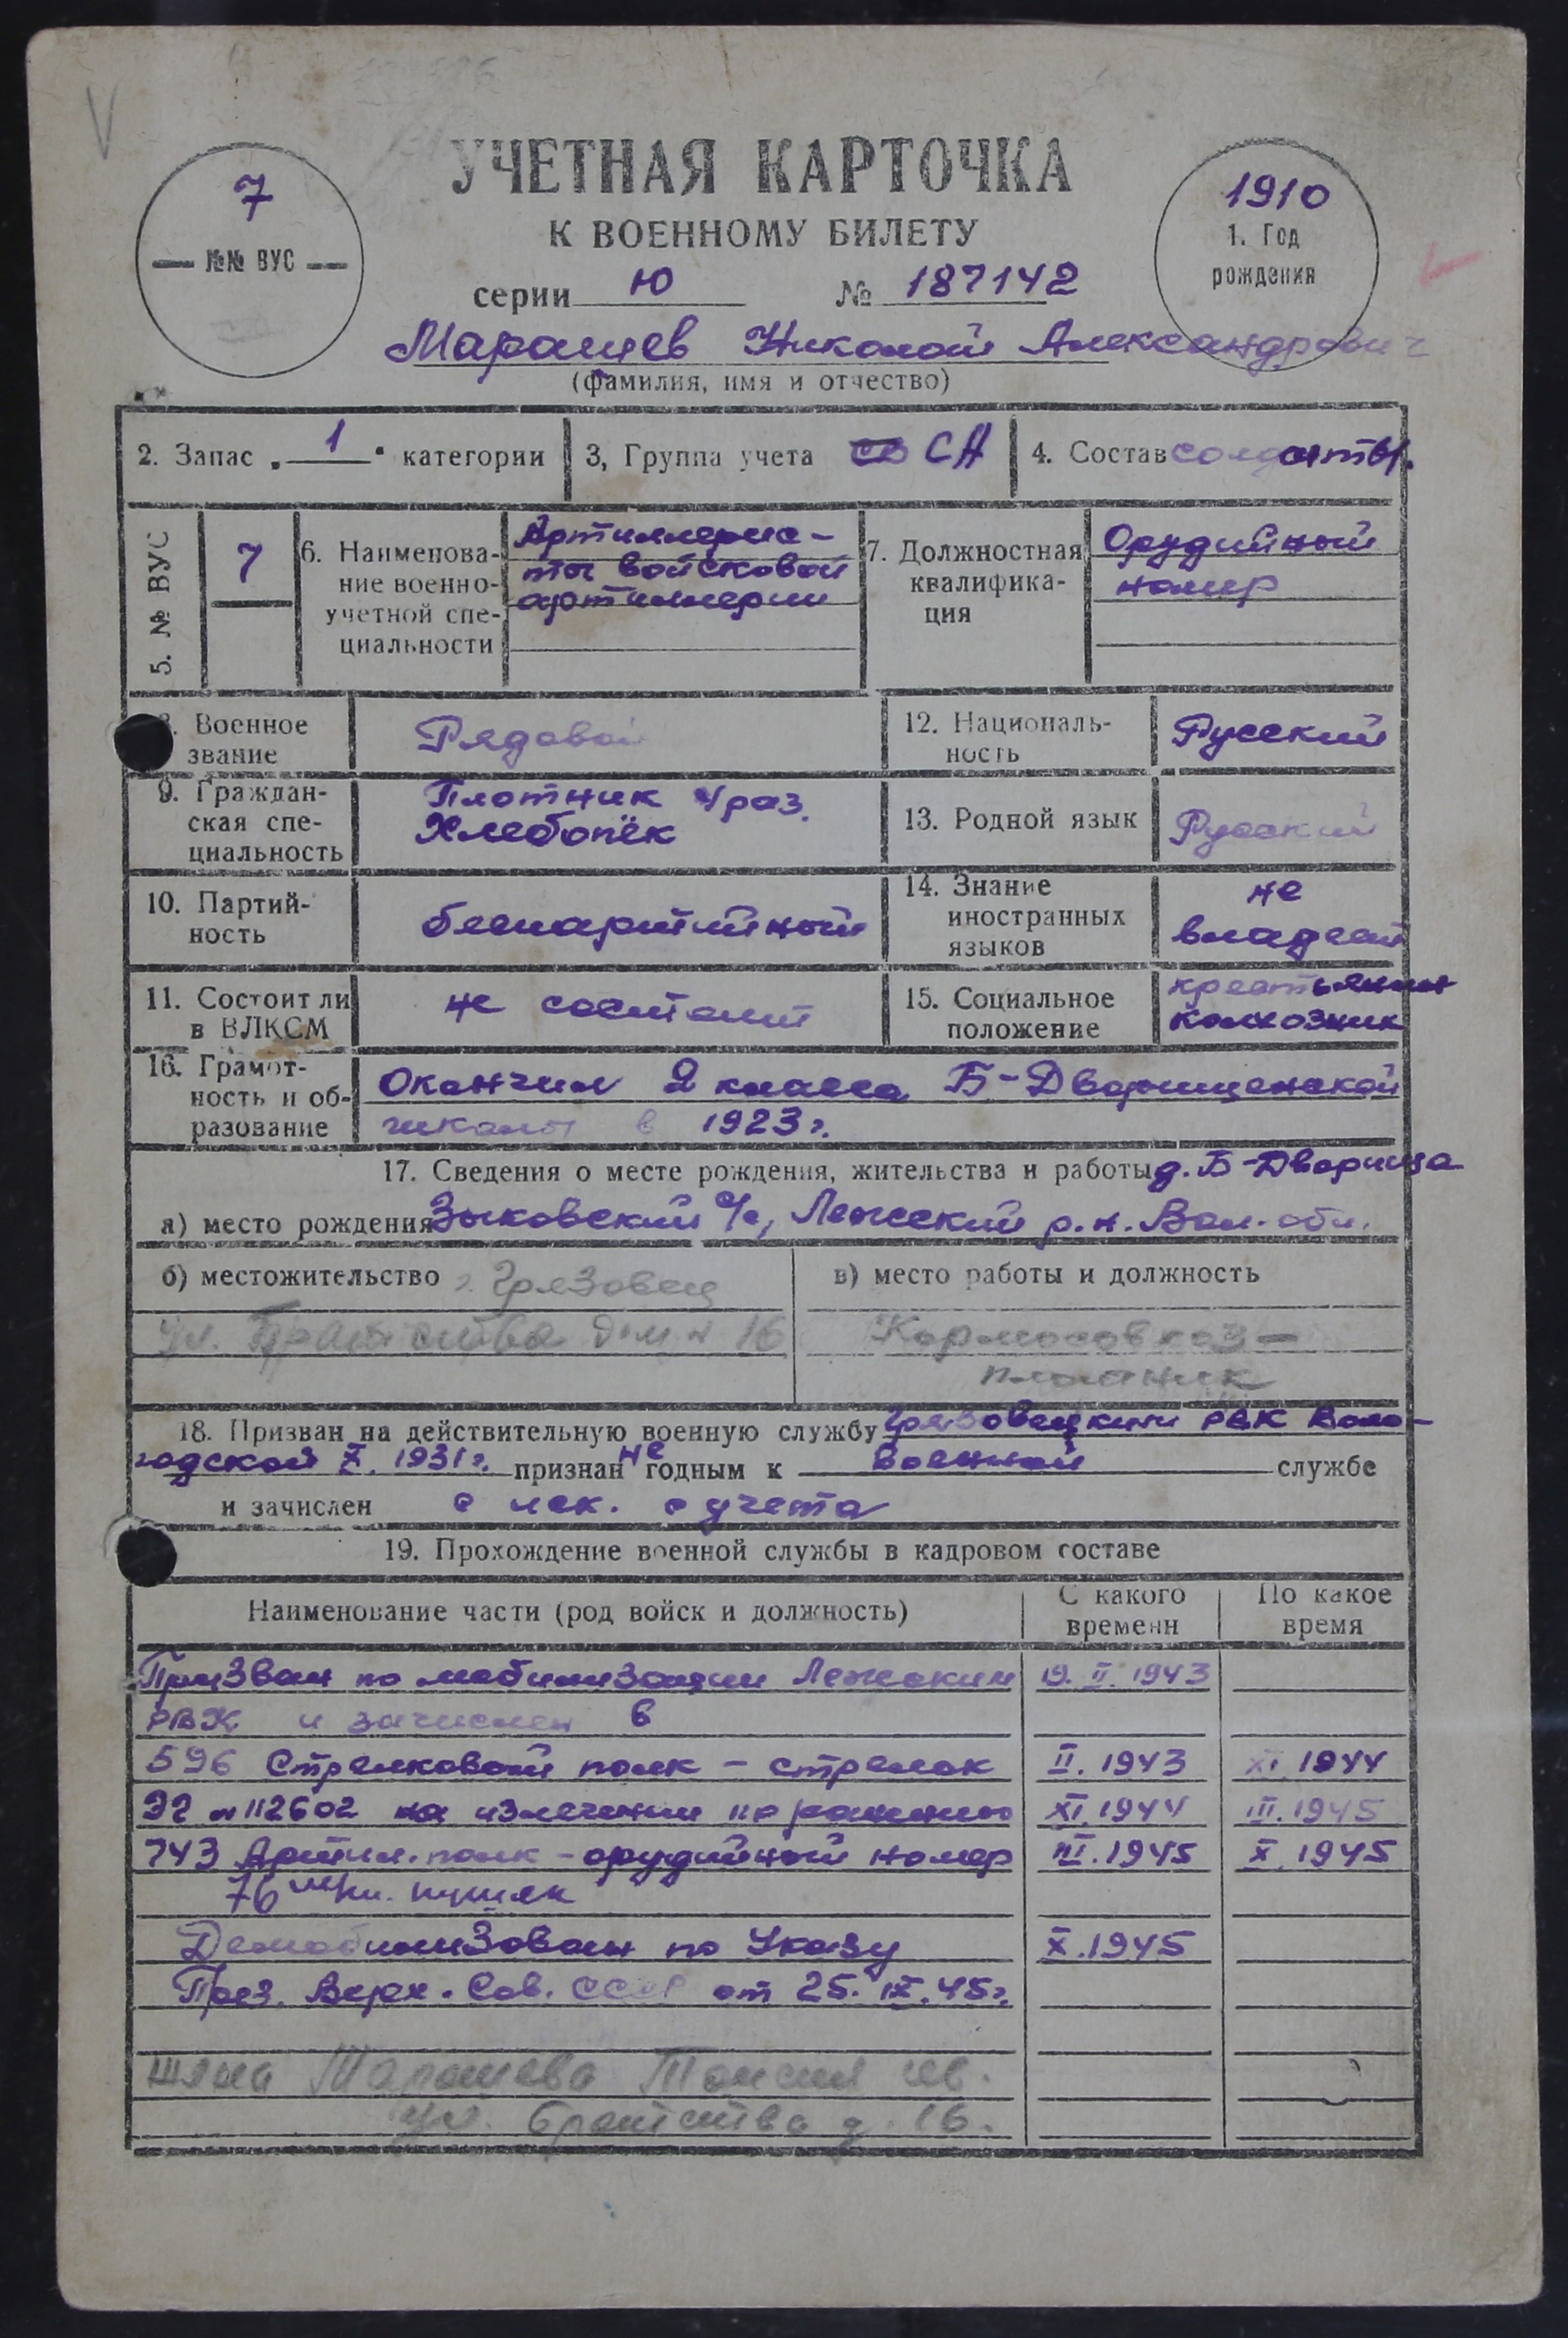 УЧЕТНАЯ КАРТОЧКА
К ВОЕННОМУ БИЛЕТУ
7
№№ ВУС
1910
1. Год
рождения
серии Ю № 187142
Марашев Николай Александрович
(фамилия, имя и отчество)
2. Запас „ 1 " категории
3, Группа учета СА
4. Состав солдаты.
5. № ВУС
7
6. Наименова-
ние военно-
учетной спе-
циальности
Артиллерис-
ты войсковой
артиллерии
7. Должностная
квалифика-
ция
Орудийный
номер
8. Военное
звание
Рядовой
12. Националь-
ность
Русский
9. Граждан-
ская спе-
циальность
Плотник 4 раз.
Хлебопёк
13. Родной язык
Русский
10. Партий-
ность
беспартийный
14. Знание
иностранных
языков
не
владеет
11. Состоит ли
в ВЛКСМ
не состоит
15. Социальное
положение
крестьянин
колхозник
16. Грамот-
ность и об-
разование
Окончил 2 класса Б-Дворищенской
школы в 1923 г.
17. Сведения о месте рождения, жительства и работы д. Б-Дворища
а) место рождения Зыковский с/с, Лежский р.н. Вол. обл.
б) местожительство г. Грязовец
ул. Братства дом № 16
в) место работы и должность
Кормосовхоз –
плотник
18. Призван на действительную военную службу Грязовецким РВК Воло-
годской X. 1931 г. признан не годным к военной службе
и зачислен с иск. с учета
19. Прохождение военной службы в кадровом составе
Наименование части (род войск и должность)
С какого
времени
По какое
время
Призван по мобилизации Лежским 19. II. 1943
РВК и зачислен в
596 Стрелковый полк – стрелок II. 1943 XI. 1944
ЭГ № 112602 на излечении по ранению XI. 1944 III. 1945
743 Артил. полк – орудийный номер III. 1945 X. 1945
76 м/м. пушек
Демобилизован по Указу X. 1945
През. Верх. Сов. СССР от 25. IX. 45 г.
жена Марашева Таисия
ул. Братства д. 16.